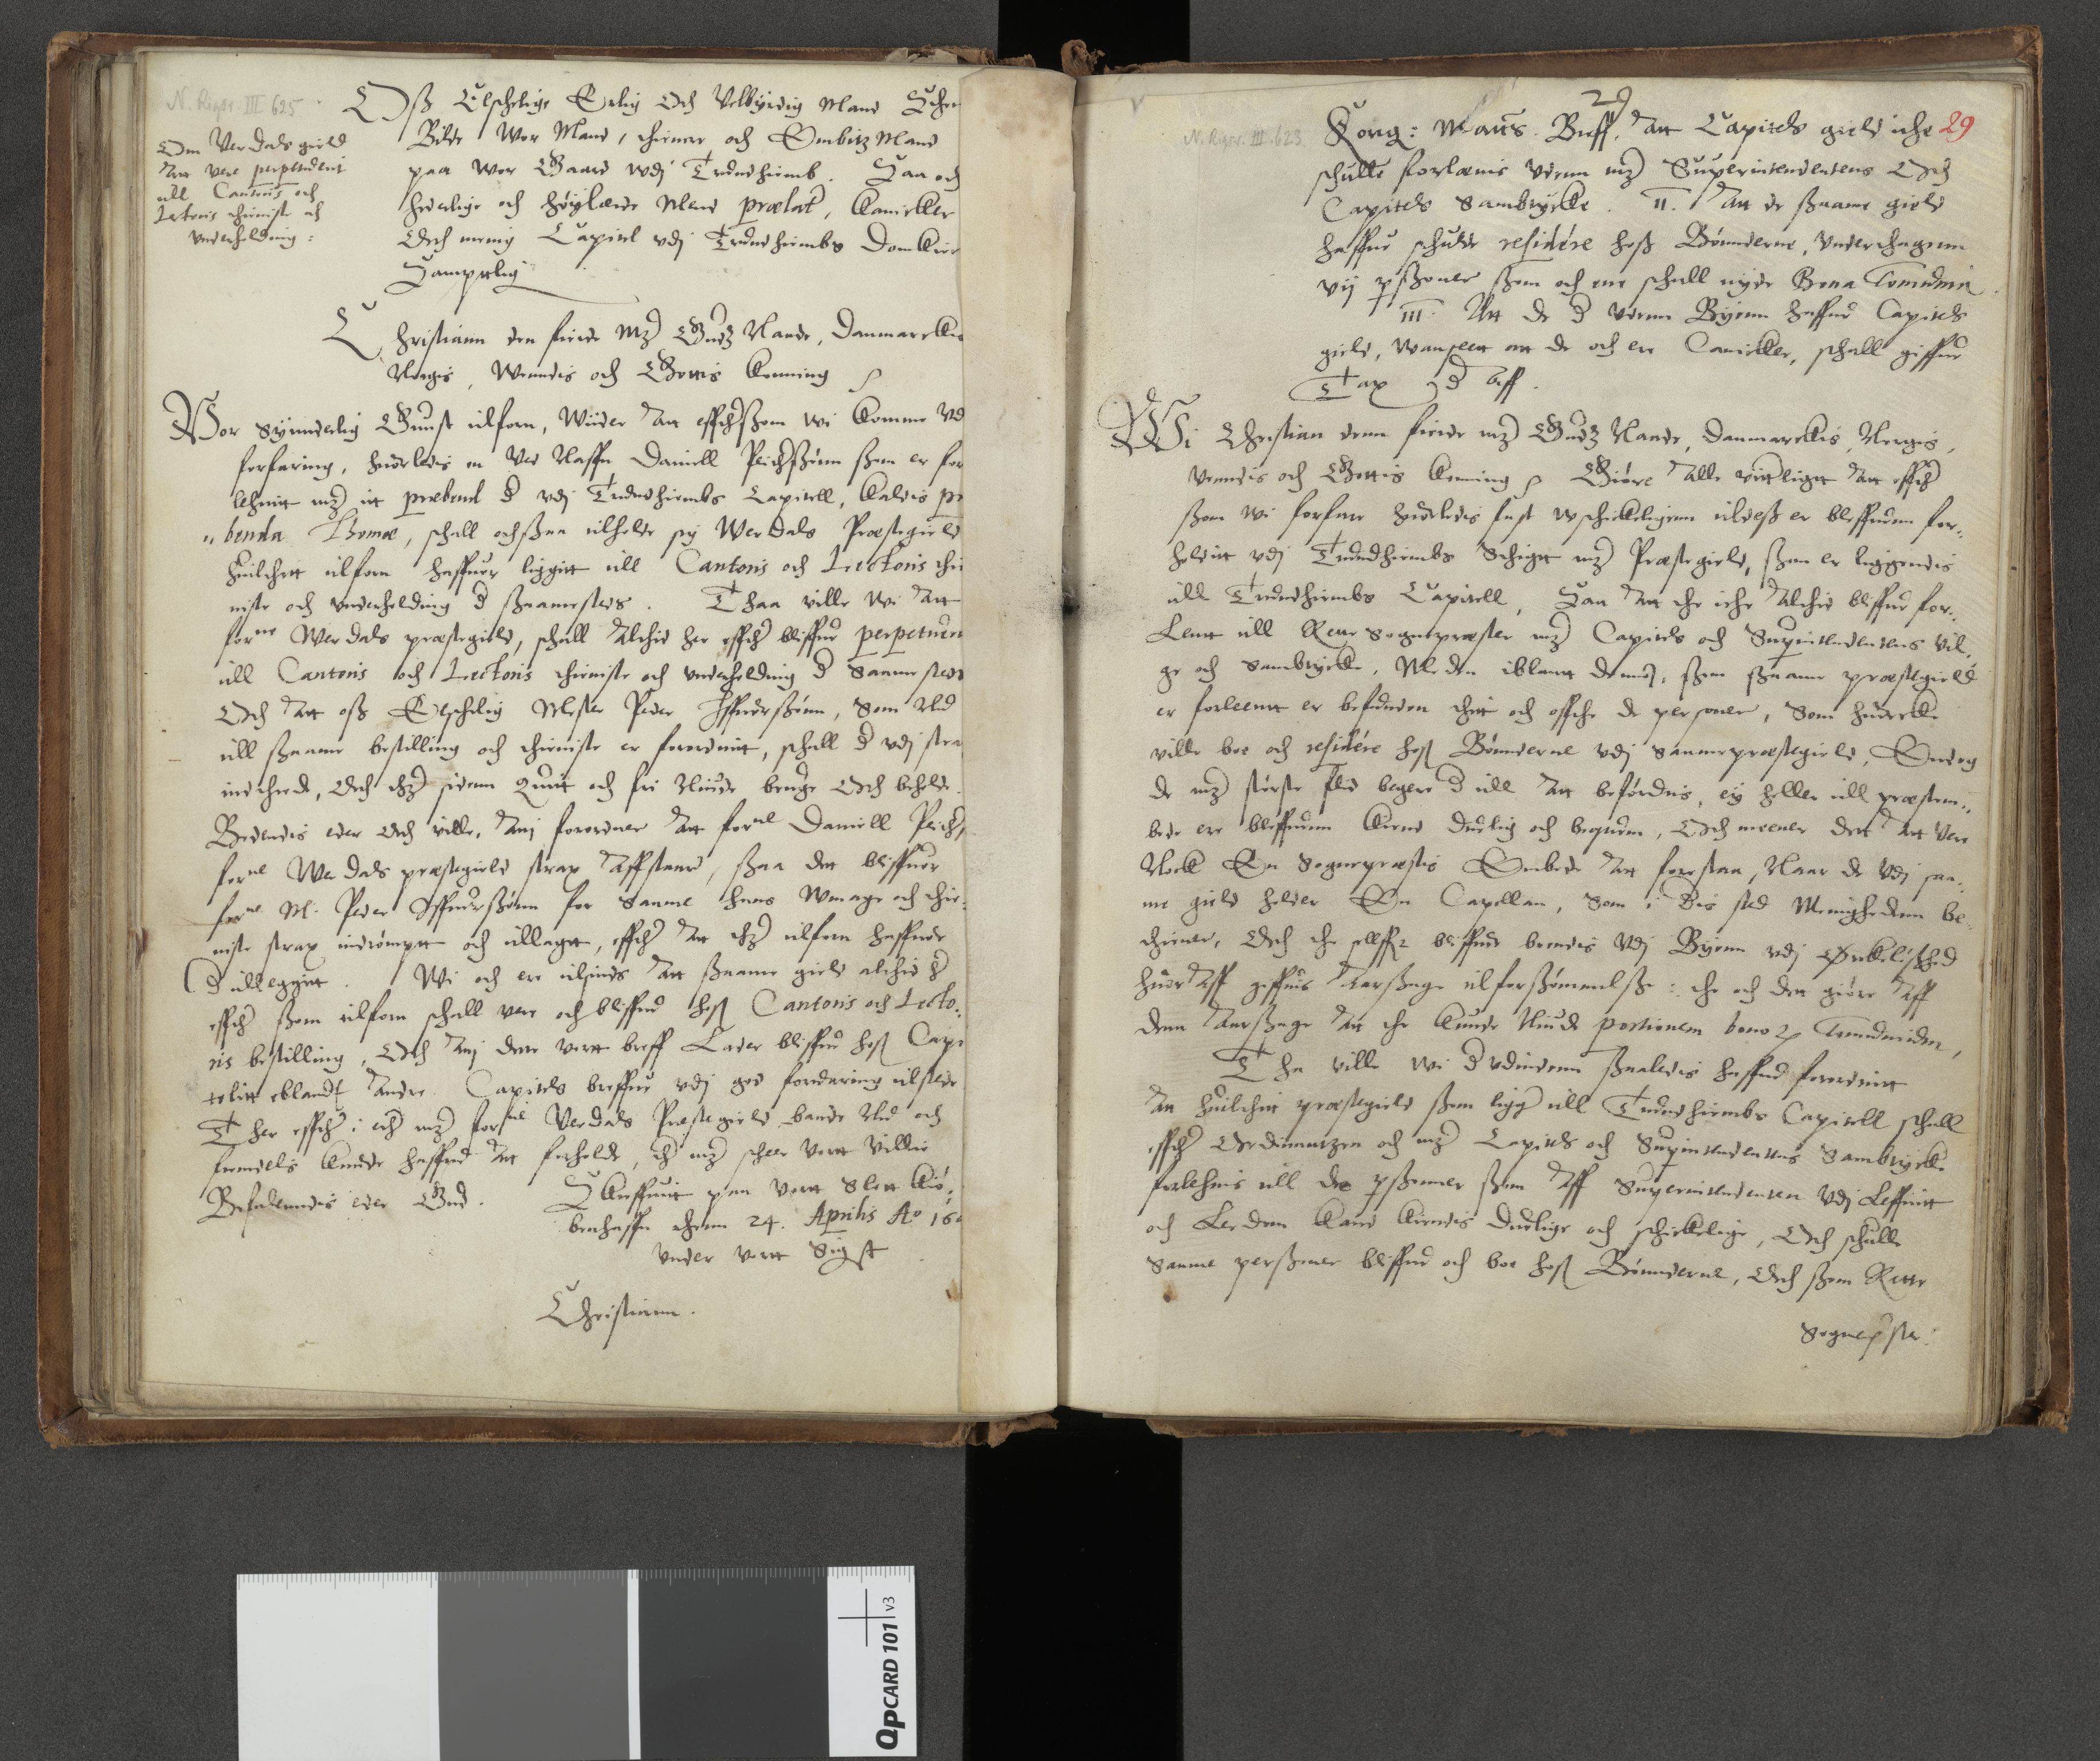 N. Rigsr. III 625
Om Verdals gield
Att vere perpetuerit
till Cantoris och
Lectoris thieniste och
vnderholding:
Oss Elschelige Erlig Och Velbyrdig Mand
Bilde Wor Mand, thiener och Embitz Mand
paa wor Gaard vdj Trundhiemb. Saa och
hederlige och høylærde Mend prælat, Kanicker
Och menig Capitel vdj Trundhiembs Domkir
Samptlig
Christiann den fierde mz Gudz Naade, Danmarckis
Norgis, Wendis och Gottis Konning
Wor synnderlig Gunst tilforn, Wiider Att effterßom wi komme vd
forfaring, huorledis en Ved Naffn Daniell ßom er for
lehnit mz itt præbend d vdj Trundhiembs Capitell, kaldis pr
benda Thomæ, schall ochßaa tilholde sig Werdals Præstegield
huilchet tilforn haffuer liggitt till Cantoris och Lectoris thie
niste och vnderholding d ßammesteds. Thaa ville wi Att
forne Werdals præstegield, schall Altid her effter bliffue perpetuerit
till Cantoris och Lectoris thieniste och vnderholding d Sammesteds
Och Att oss Elschelig Mester Peder Iffuerßønn, Som Nu
till ßamme bestilling och thieniste er forordnit, schall d vdj strax
indthrede, Och thz siden Quit och fri Niude bruge Och beholde.
Bedendis eder Och ville, Atj forordner Att forne Daniell
forne Werdals præstegield strax Affstaar, ßaa det bliffuer
forne M. Peder Iffuerßønn for Samme hans Vmage och thie-
niste strax indrømptt och tillagtt, effter Att thz tilforn haffuer
d tilleggitt. Wi och ere tilsinds Att ßamme gield altid her
effter ßom tilforn schall vere och bliffue hoss Cantoris och Lecto-
ris bestilling, Och Atj dette vort breff Lader bliffue hoss Capi
telitt eblandt Andre Capitels breffue vdj god foruaring tilstede
Ther effter i eder mz forne Verdals Præstegield baade Nu och
fremdelis kunde haffue Att forholde, ther mz scheer vort villie
Befalendis eder Gud. Schreffuit paa vort Slott Kiø-
benhaffn thenn 24. Aprilis Ao 16
Vnder vortt Signett
Christiann.
29
29
N. Rigsr. III. 623.
Kong: Maits. Breff, Att Capitels gield iche
schulle forlænis vdenn mz Superintendentens Och
Capitels Sambtycke. II. Att de ßamme gield
haffue schulde residére hoss Bønnderne, Vnderthagenn
vij perßoner ßom och ene schall nyde Bona Communia
III. Att de d vdenn Byenn haffue Capitels
gield, Vanseett att de och ere Canicker, schall giffue
Tax
Wi Christian denn fierde mz Gudz Naade, Danmarckis, Norgis,
Venndis och Gottis Konning Giøre Alle vitterligtt Att effter
ßom wi forfare huorledis fast vschickeligenn tildess er bleffuenn for-
holdit vdj Trundhiembs Schigtt mz Præstegield, ßom er liggendis
till Trundhiembs Capitell, Saa Att the iche Altid bliffue for-
Lent till Rette Sognepræster mz Capitels och Superintendentens Vil-
ge och Sambtycke. Meden iblandt dennom, ßom ßamme præstegield
er forleent er befunden thitt och offthe de personer, Som huercke
ville boe och residére hoss Bønnderne vdj Sammepræstegield, Endog
de mz største flid begere d till Att befordris, ey heller till præsteem-
bede ere bleffuenn kiend duelig och beqvem, Och meener dett Att vere
Nock En Sognepræstis Embede Att forestaa, Naar de vdj saa-
me gield holder En Capellan, Som i Dis sted Menighedenn be-
thiener, Och the selffue bliffue boendis vdj Byenn vdj
huor Aff giffuis Aarßage till forßømmelße: the och dett giøre Aff
denn Aarßage Att the kunde Niude portionem bonorum Communium,
Tha ville wi d vdindenn ßaaledis haffue forordnitt
Att huilchitt præstegield ßom ligger till Trundhiembs Capitell schall
effter Ordinantzen och mz Capitels och Superintendentens Sambtycke
forlehnis till de perßonner ßom Aff Superintendenten vdj Leffnitt
och Lerdom kand kiendis duelige och schickelige, Och schulle
Samme perßoner bliffue och boe hoss Bønnderne, Och ßom Rette
Sognepræster
QpCARD 101 v3